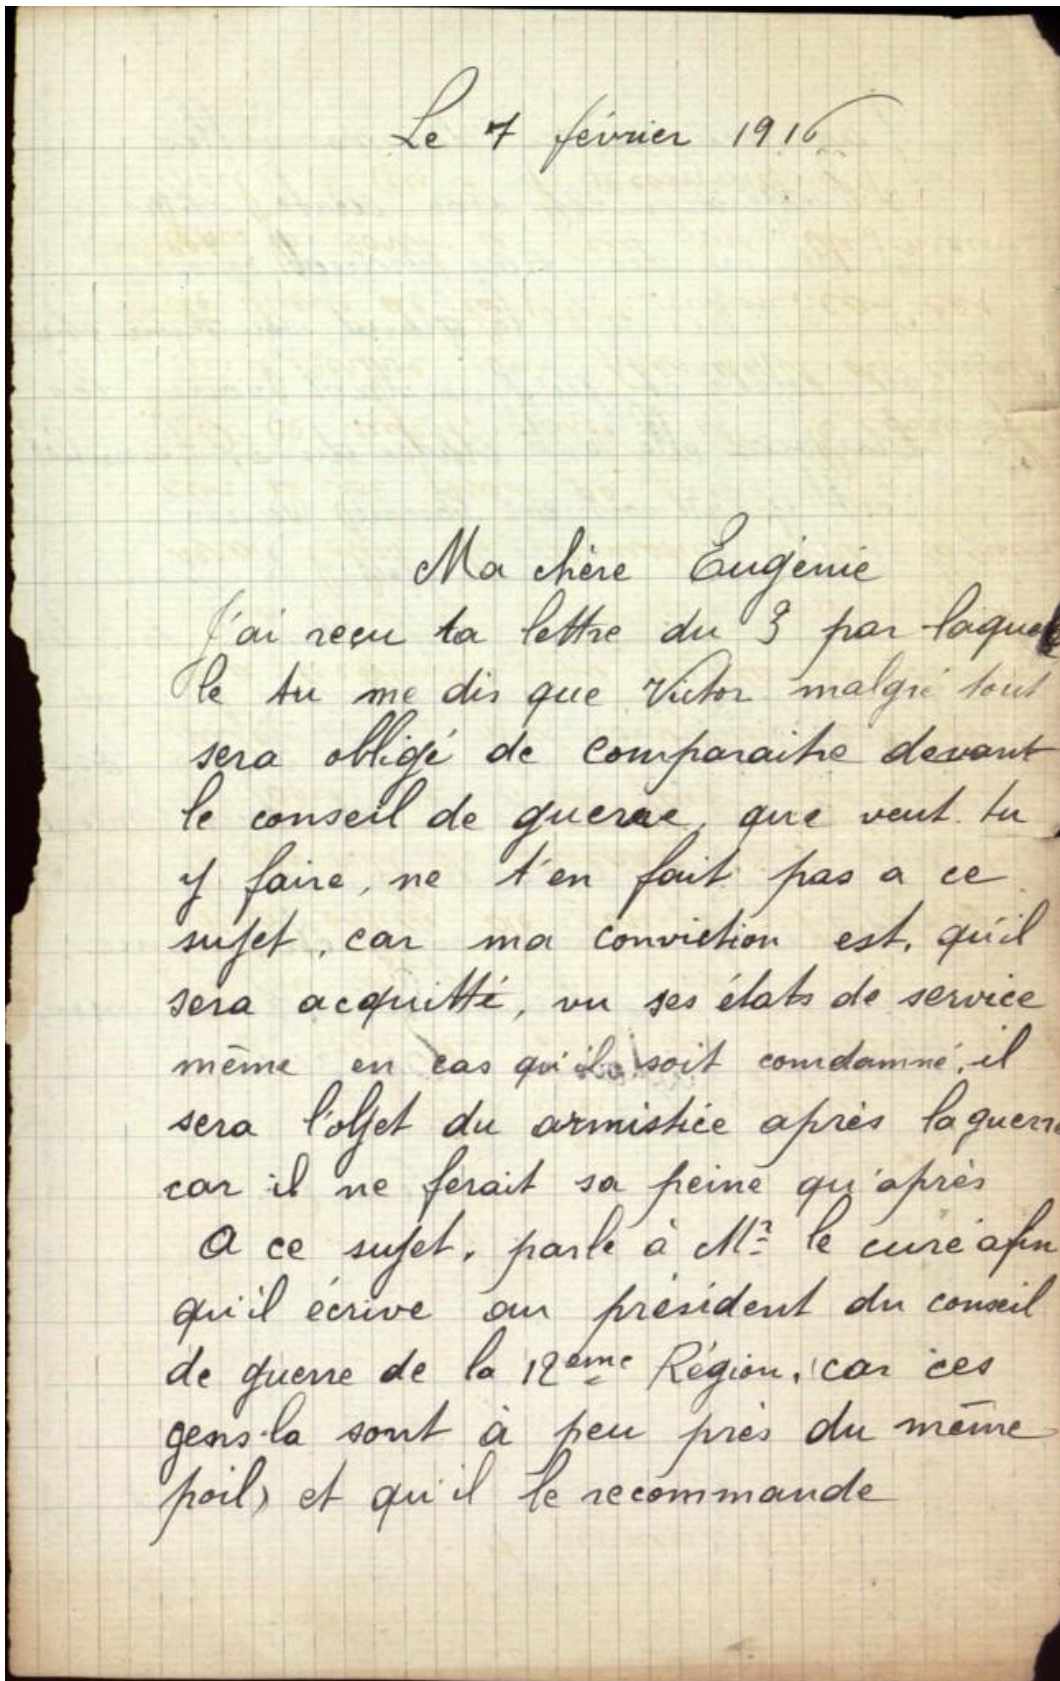 Le 7 février 1916
Ma chère Eugénie
J'ai reçu ta lettre du 3 par laquel
le tu me dis que Victor malgré tout
sera obligé de comparaitre devant
le conseil de guerre, que veut tu
y faire, ne t'en fait pas a ce
sujet, car ma conviction est, qu'il
sera acquitté, vu ses états de service
même en cas qu'il soit comdamné, il
sera l'objet du armistice après la guerre
car il ne ferait sa peine qu'après
A ce sujet, parle à Mr le curé afin
qu'il écrive au président du conseil
de guerre de la 12ème Région, (car ces
gens-la sont à peu près du même
poil) et qu'il le recommande